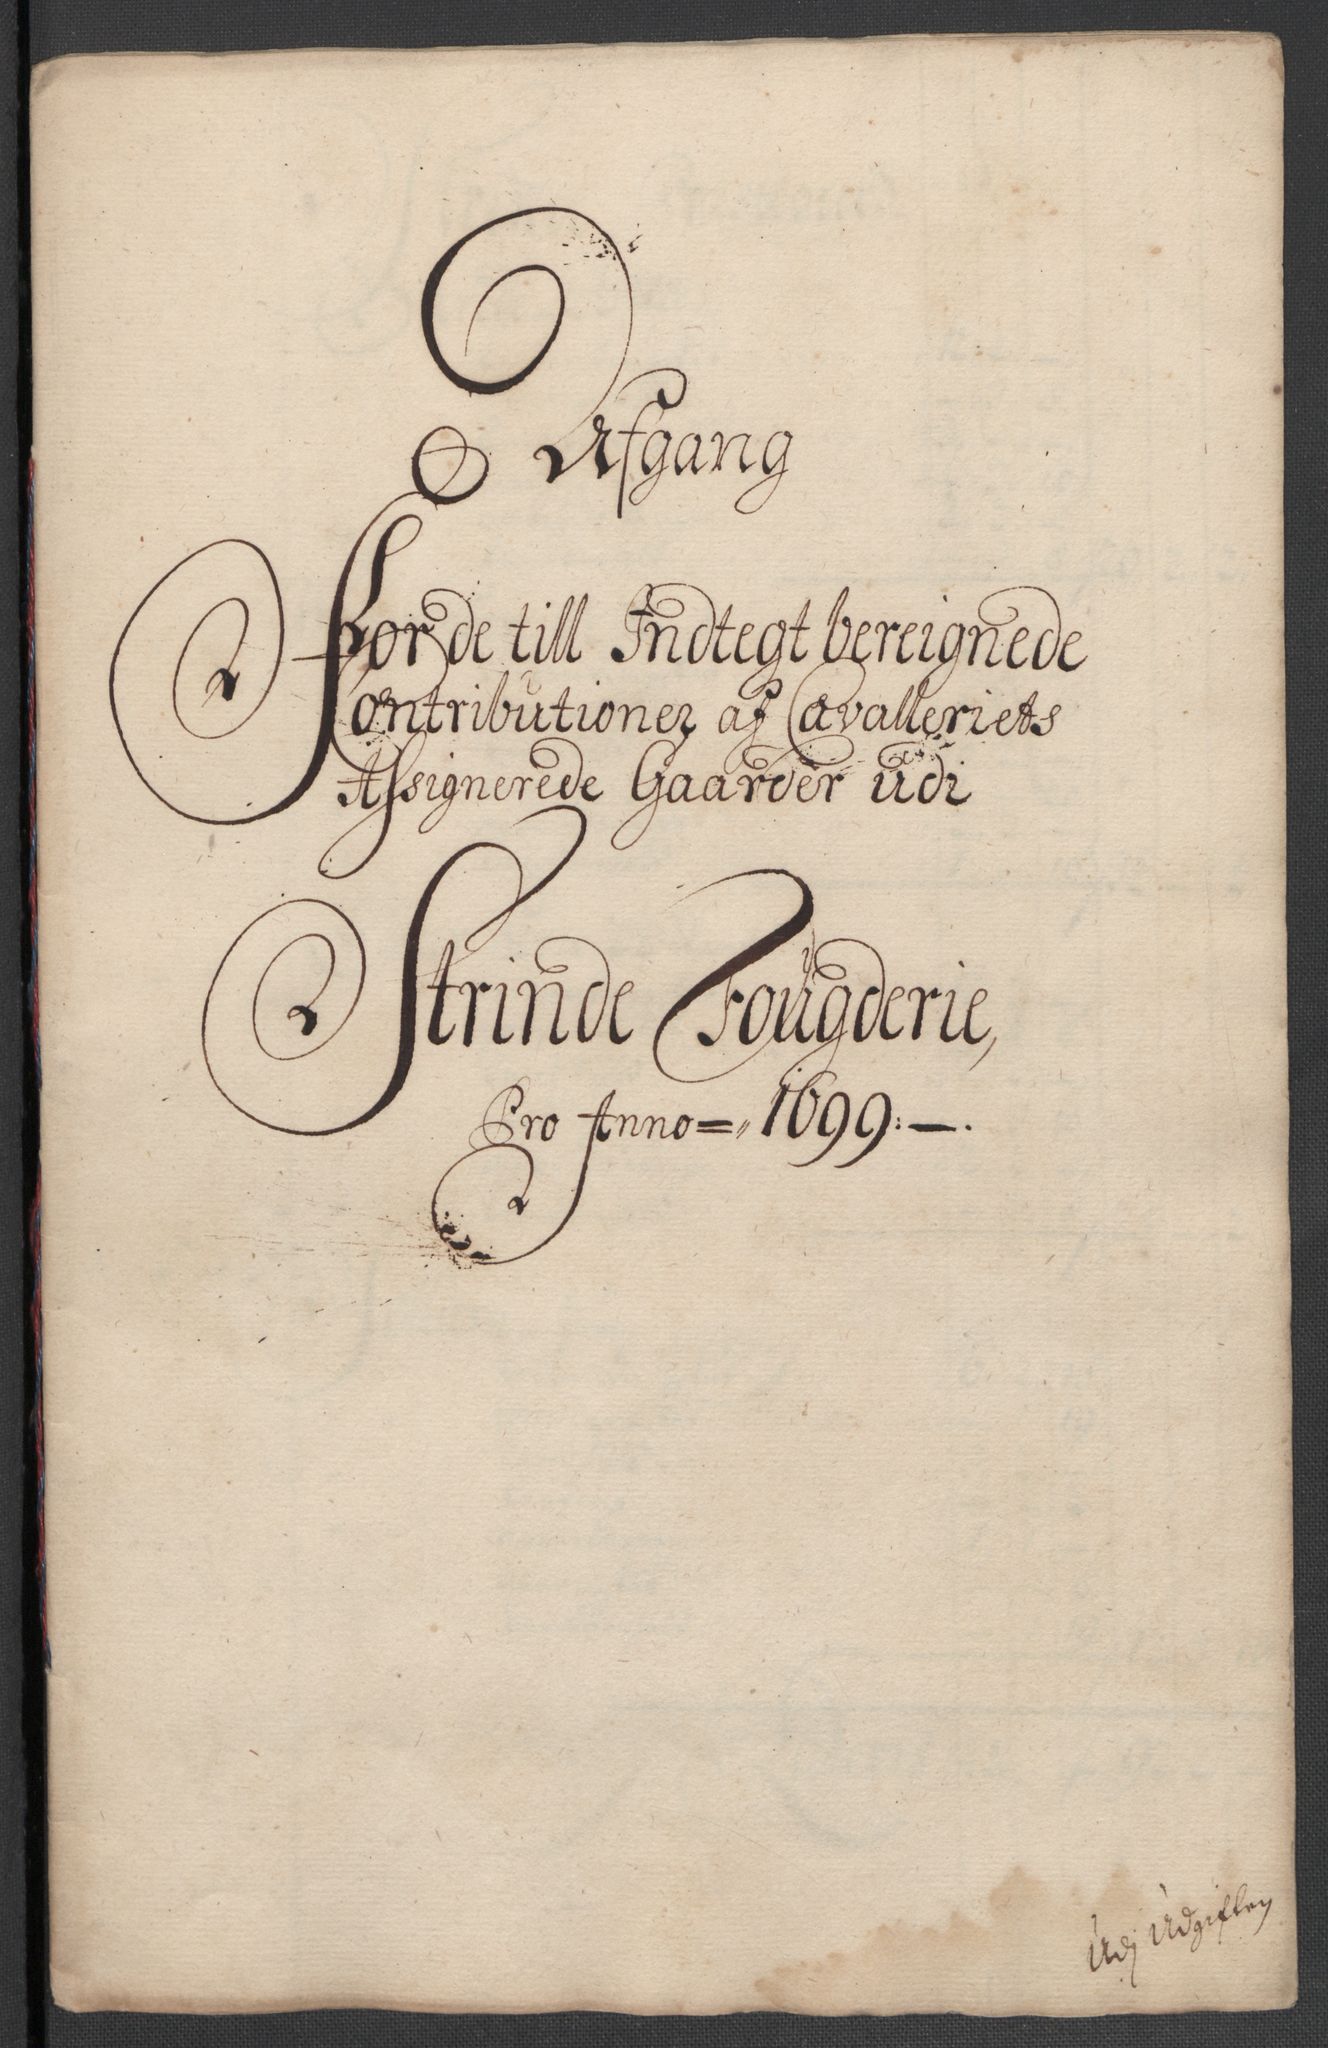 Afgang
For de till Indtegt bereignede
Contributioner af Cavalleriets
Assignerede Gaarder udi
Strinde Fougderie,
Pro Anno =„ 1699:—.
Udj Udgiften